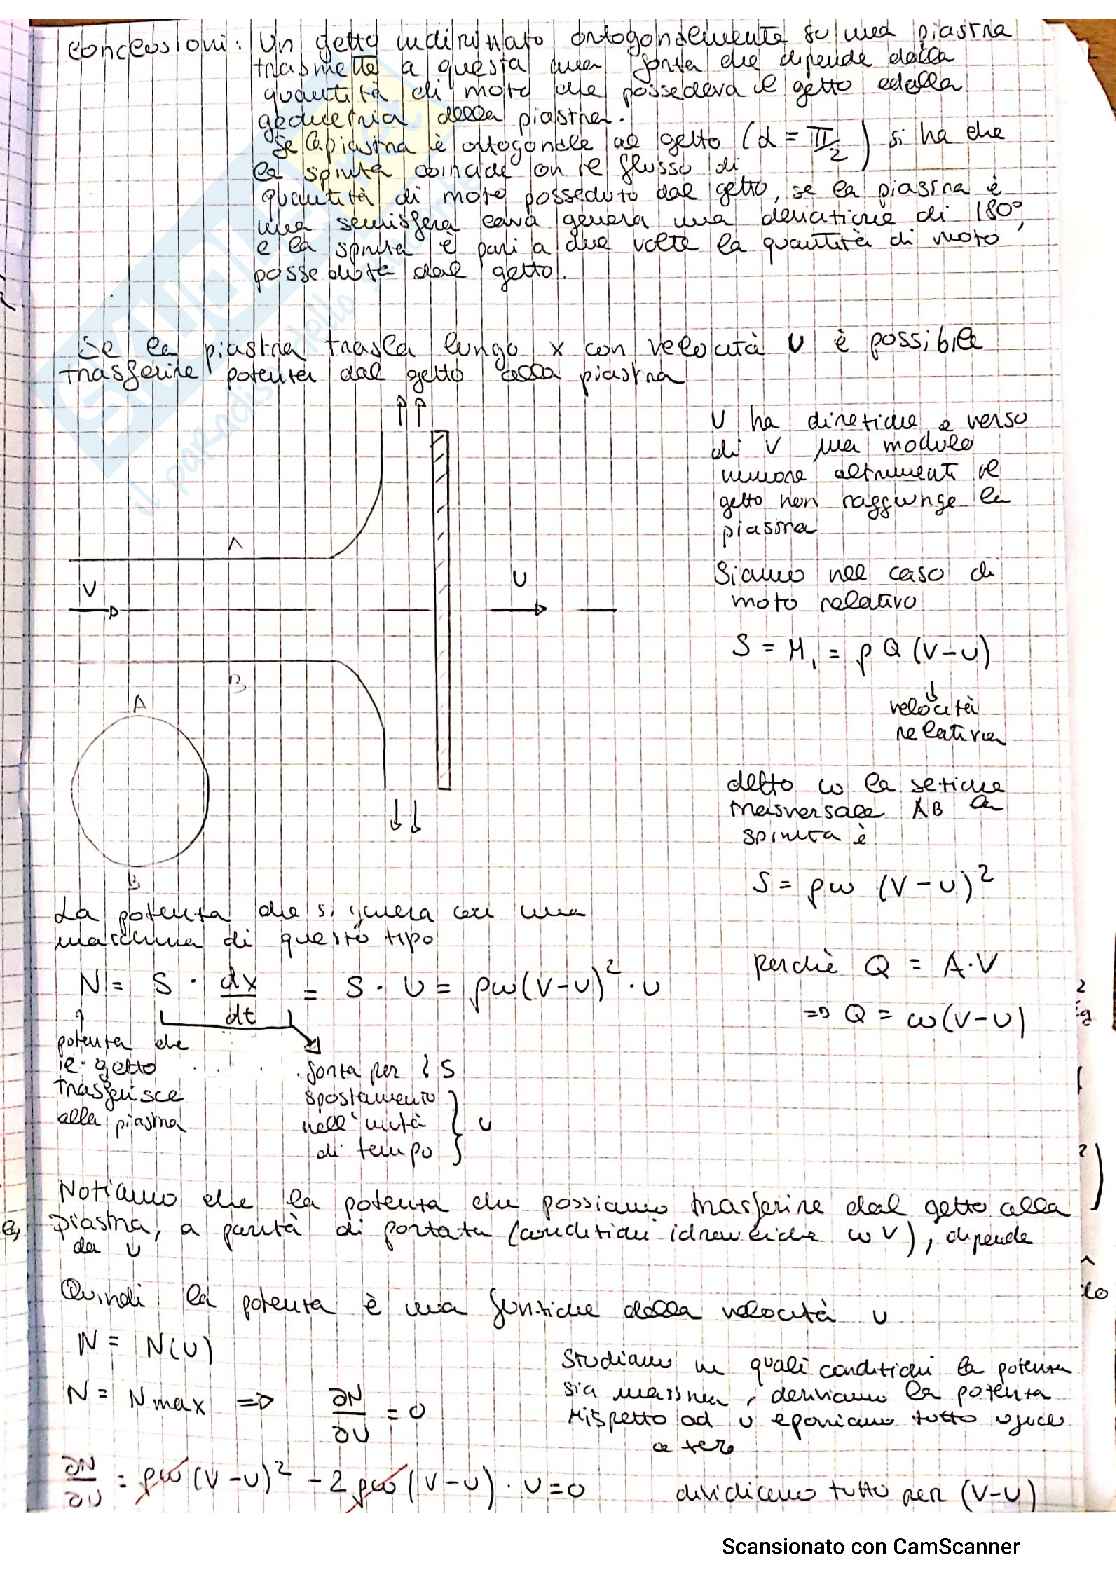 conclusioni: Un getto indirizzato ortogonalmente su una piastra
trasmette a questa una forza che dipende dalla
quantità di moto che possedeva il getto e dalla
geometria della piastra.
Se la piastra è ortogonale al getto (α = π/2) si ha che
la spinta coincide con il flusso di
quantità di moto posseduto dal getto, se la piastra è
una semisfera cava genera una deviazione di 180°,
e la spinta è pari a due volte la quantità di moto
posseduta dal getto.
Se la piastra trasla lungo x con velocità U è possibile
trasferire potenza dal getto alla piastra
U ha direzione e verso
di V ma modulo
minore altrimenti il
getto non raggiunge la
piastra
A
V
U
Siamo nel caso di
moto relativo
S = M₁ = ρ Q (V-U)
B
A
velocità
relativa
detto ω la sezione
trasversale AB la
spinta è
B
S = ρω (V-U)²
La potenza che si genera con una
macchina di questo tipo
perchè Q = A·V
N = S · dx/dt = S · U = ρω(V-U)² · U
=> Q = ω(V-U)
potenza che
il getto
trasferisce
alla piastra
forza per } S
spostamento
nell'unità } U
di tempo
Notiamo che la potenza che possiamo trasferire dal getto alla
piastra, a parità di portata (condizioni idrauliche ω V), dipende
da U
Quindi la potenza è una funzione della velocità U
N = N(U)
Studiamo in quali condizioni la potenza
sia massima, deriviamo la potenza
rispetto ad U e poniamo tutto uguale
a zero
N = Nmax => ∂N/∂U = 0
∂N/∂U = ρω(V-U)² - 2ρω(V-U) · U = 0
dividiamo tutto per (V-U)
Scansionato con CamScanner